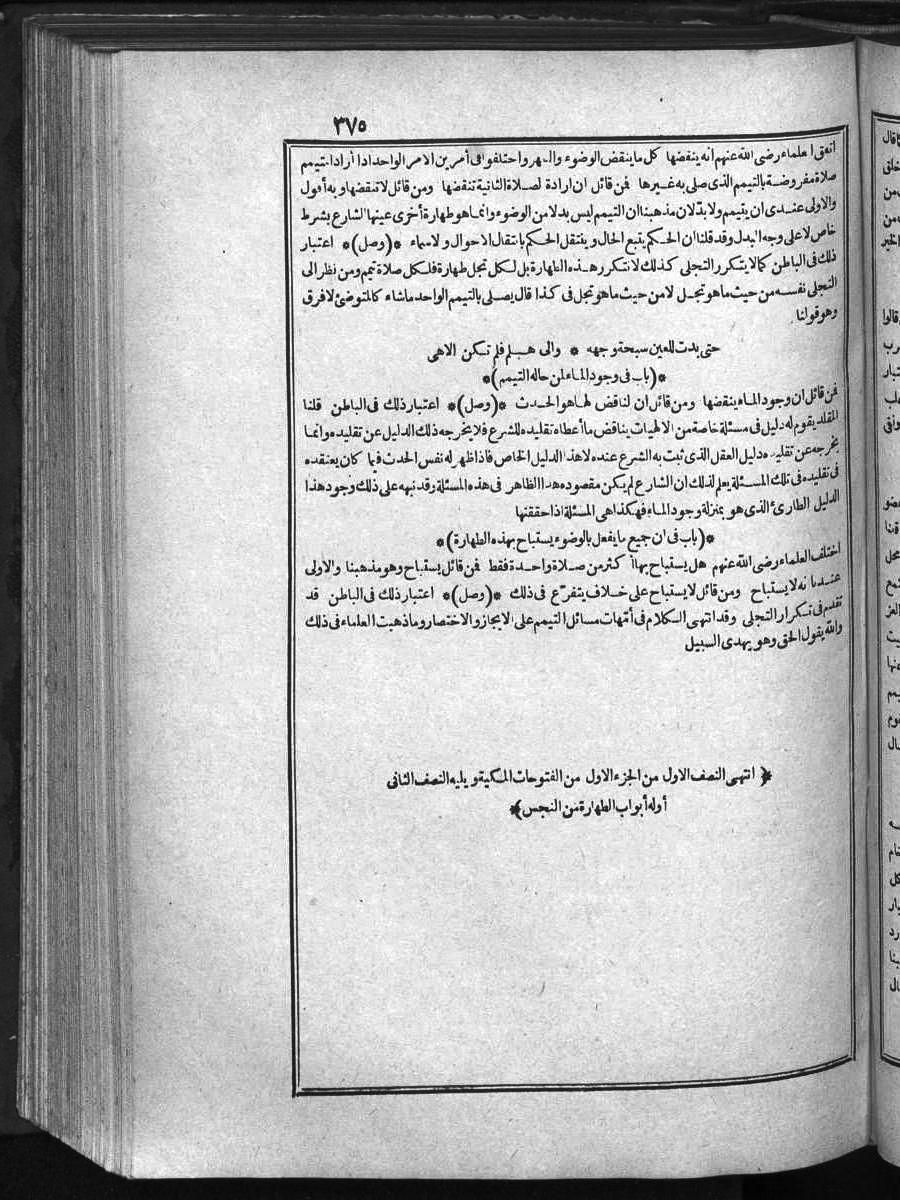 ٣٧٥
اتفق العلماء رضى الله عنهم انه ينقضها كل ما ينقض الوضوء والطهر واختلفوا فى أمرين الامر الواحد اذا أراد المتيمم
صلاة مفروضة بالتيمم الذى صلى به غيرها فمن قائل ان ارادة الصلاة الثانية تنقضها ومن قائل لا تنقضها وبه أقول
والاولى عندى ان يتيمم ولا بدّ لان مذهبنا ان التيمم ليس بدلا من الوضوء وانما هو طهارة أخرى عينها الشارع بشرط
خاص لا على وجه البدل وقد قلنا ان الحكم يتبع الحال وينتقل الحكم بانتقال الاحوال والاسماء *(وصل)* اعتبار
ذلك فى الباطن كما لا يتكرر التجلى كذلك لا تتكرر هذه الطهارة بل لكل تجل طهارة فلكل صلاة تيمم ومن نظر الى
التجلى نفسه من حيث ما هو تجل لا من حيث ما هو تجل فى كذا قال يصلى بالتيمم الواحد ما شاء كالمتوضئ لا فرق
وهو قولنا
حتى بدت للعين سبحة وجهه * والى هلم فلم تكن الاهى
*(باب فى وجود الماء لمن حاله التيمم)*
فمن قائل ان وجود الماء ينقضها ومن قائل ان الناقض لها هو الحدث *(وصل)* اعتبار ذلك فى الباطن قلنا
المقلد يقوم له دليل فى مسئلة خاصة من الالهيات يناقض ما أعطاه تقليده للشرع فلا يخرجه ذلك الدليل عن تقليده وانما
يخرجه عن تقليده دليل العقل الذى ثبت به الشرع عنده لا هذا الدليل الخاص فاذا ظهر له نفس الحدث فيما كان يعتقده
فى تقليده فى تلك المسئلة يعلم لذلك ان الشارع لم يكن مقصوده هذا الظاهر فى هذه المسئلة وقد نبهه على ذلك وجود هذا
الدليل الطارئ الذى هو بمنزلة وجود الماء فهكذا هى المسئلة اذا حققتها
*(باب فى ان جميع ما يفعل بالوضوء يستباح بهذه الطهارة)*
اختلف العلماء رضى الله عنهم هل يستباح بها أكثر من صلاة واحدة فقط فمن قائل يستباح وهو مذهبنا والاولى
عندنا انه لا يستباح ومن قائل لا يستباح على خلاف يتفرّع فى ذلك *(وصل)* اعتبار ذلك فى الباطن قد
تقدم فى تكرار التجلى وقد انتهى الكلام فى أمّهات مسائل التيمم على الايجاز والاختصار وما ذهبت العلماء فى ذلك
والله يقول الحق وهو يهدى السبيل
*( انتهى النصف الاول من الجزء الاول من الفتوحات المكية ويليه النصف الثانى
أوله أبواب الطهارة من النجس)*